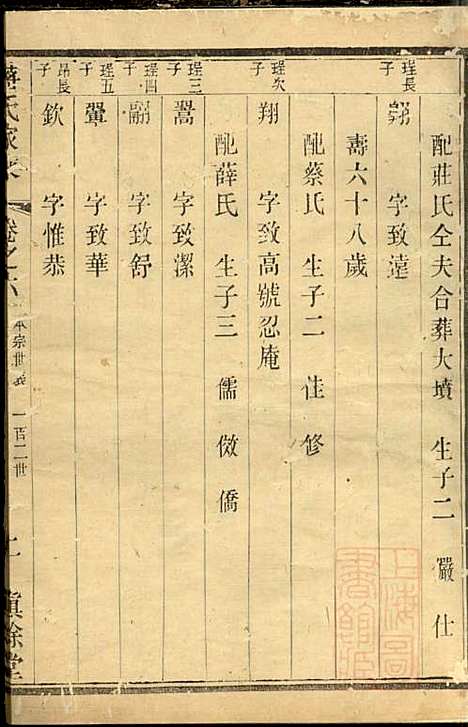 配莊氏仝夫合葬大墳 生子二 嚴 仕
珵長子
翱 字致遠
壽六十八歲
配蔡氏 生子二 佳 修
珵次子
翔 字致高號忍庵
配薛氏 生子三 儒 傚 僑
珵三子
翯 字致潔
珵四子
翮 字致舒
珵五子
翬 字致華
昂長子
欽 字惟恭
氏家 卷之六 本宗世表 一百二世 餘堂
上海圖書館